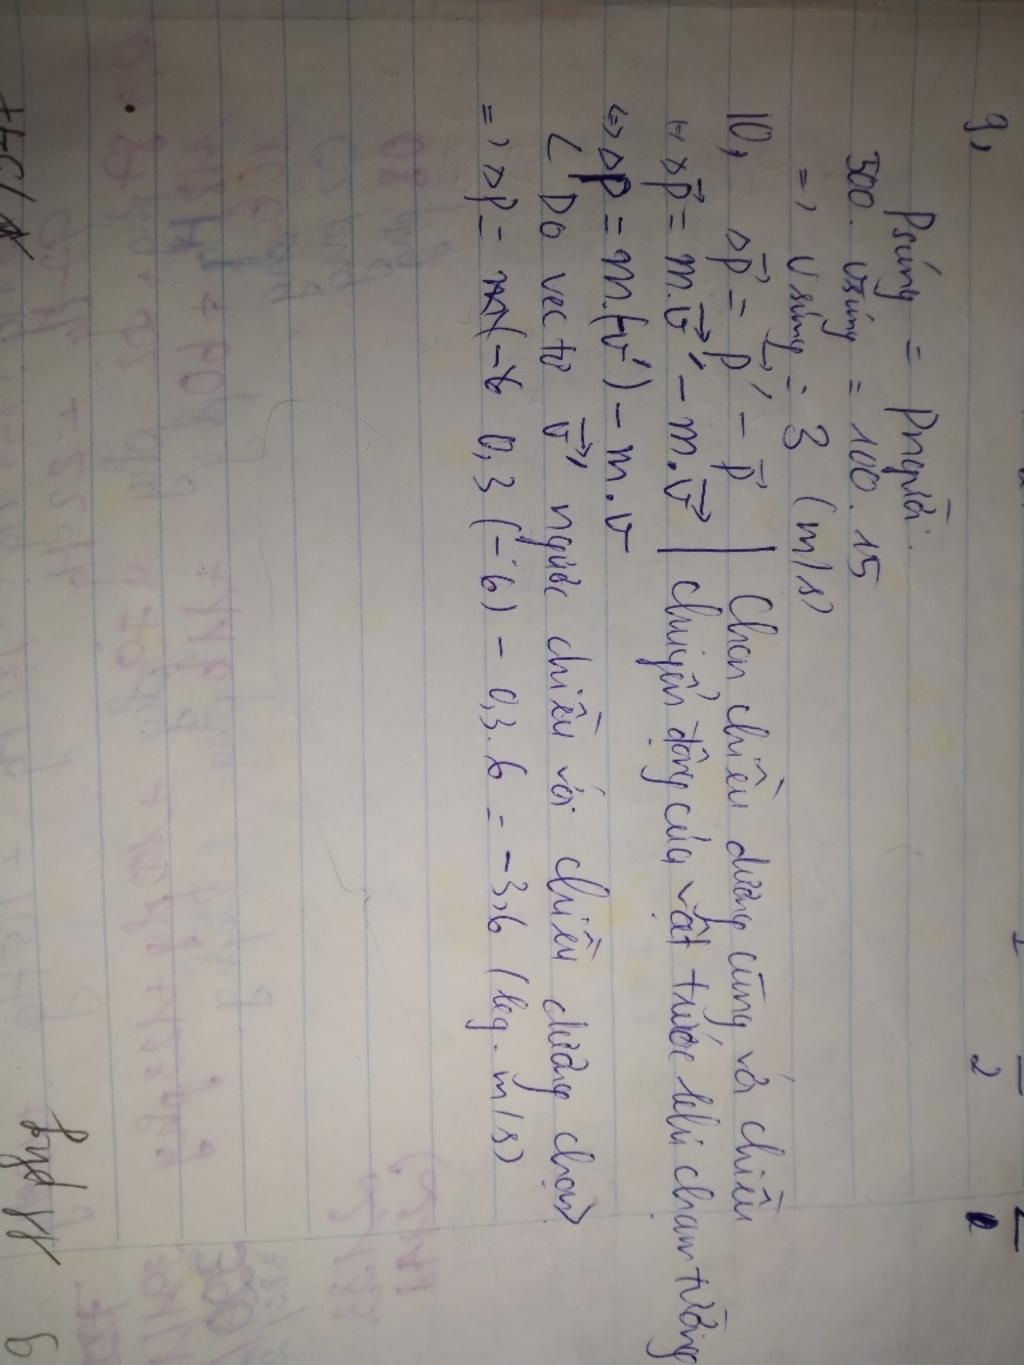 9,
Psúng = Pngười.
500. vsúng = 100. 15
=> vsúng = 3 (m/s)
10, Δp⃗ = p⃗' - p⃗ | Chọn chiều dương cùng với chiều
↔ Δp⃗ = m.v⃗' - m.v⃗ | chuyển động của vật trước khi chạm tường
↔ Δp = m.(-v') - m.v
< Do vectơ v⃗' ngược chiều với chiều dương chọn>
=> Δp = 0,3 (-6) - 0,3.6 = -3,6 (kg.m/s)